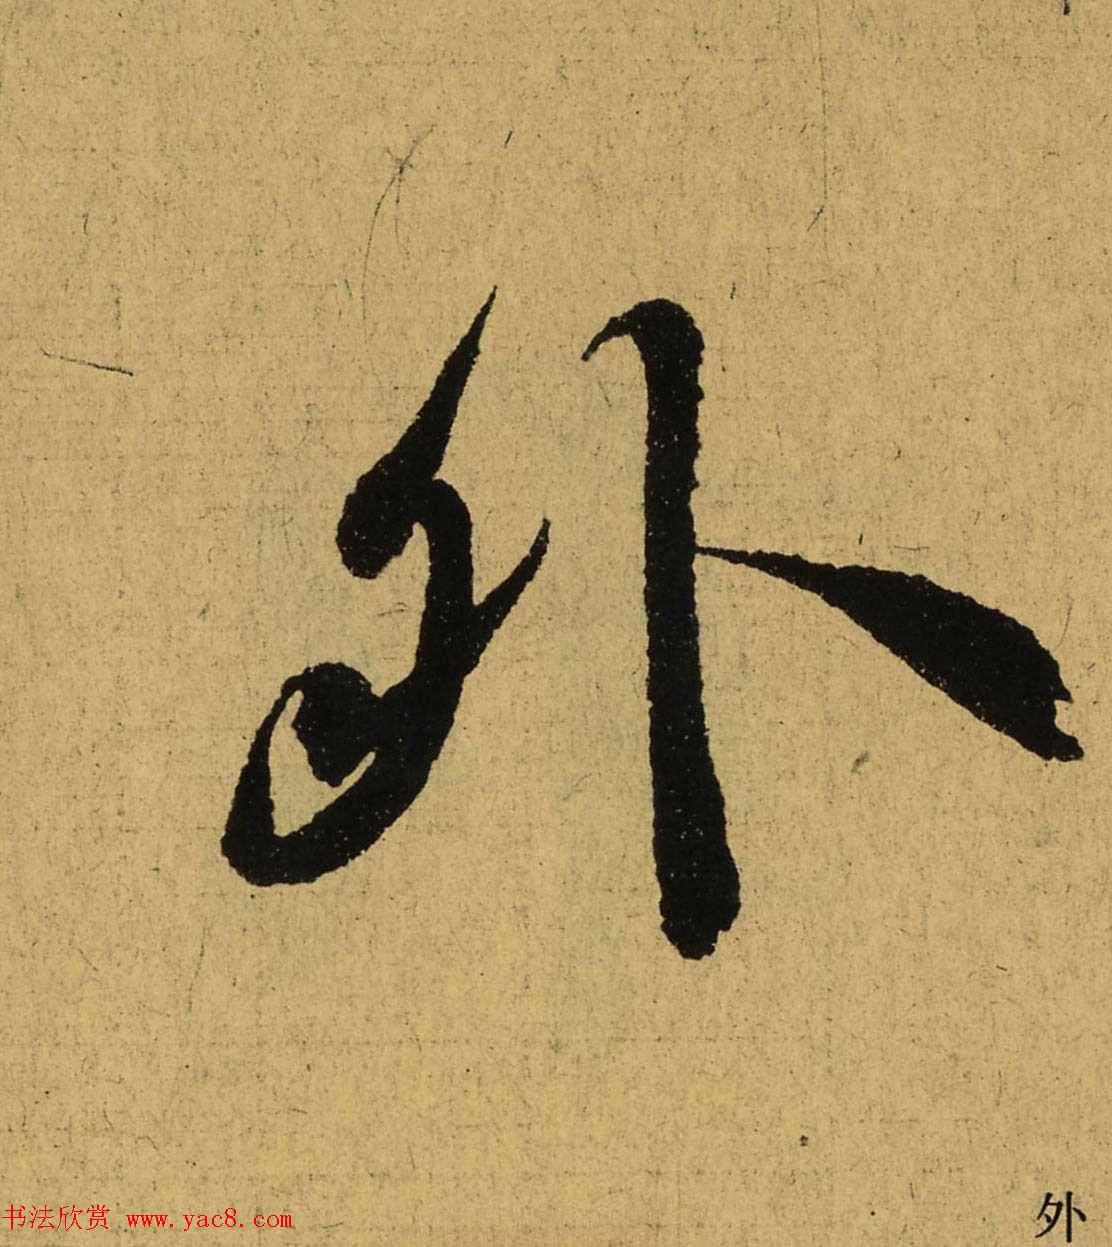 外
书法欣赏 www.yac8.com
外